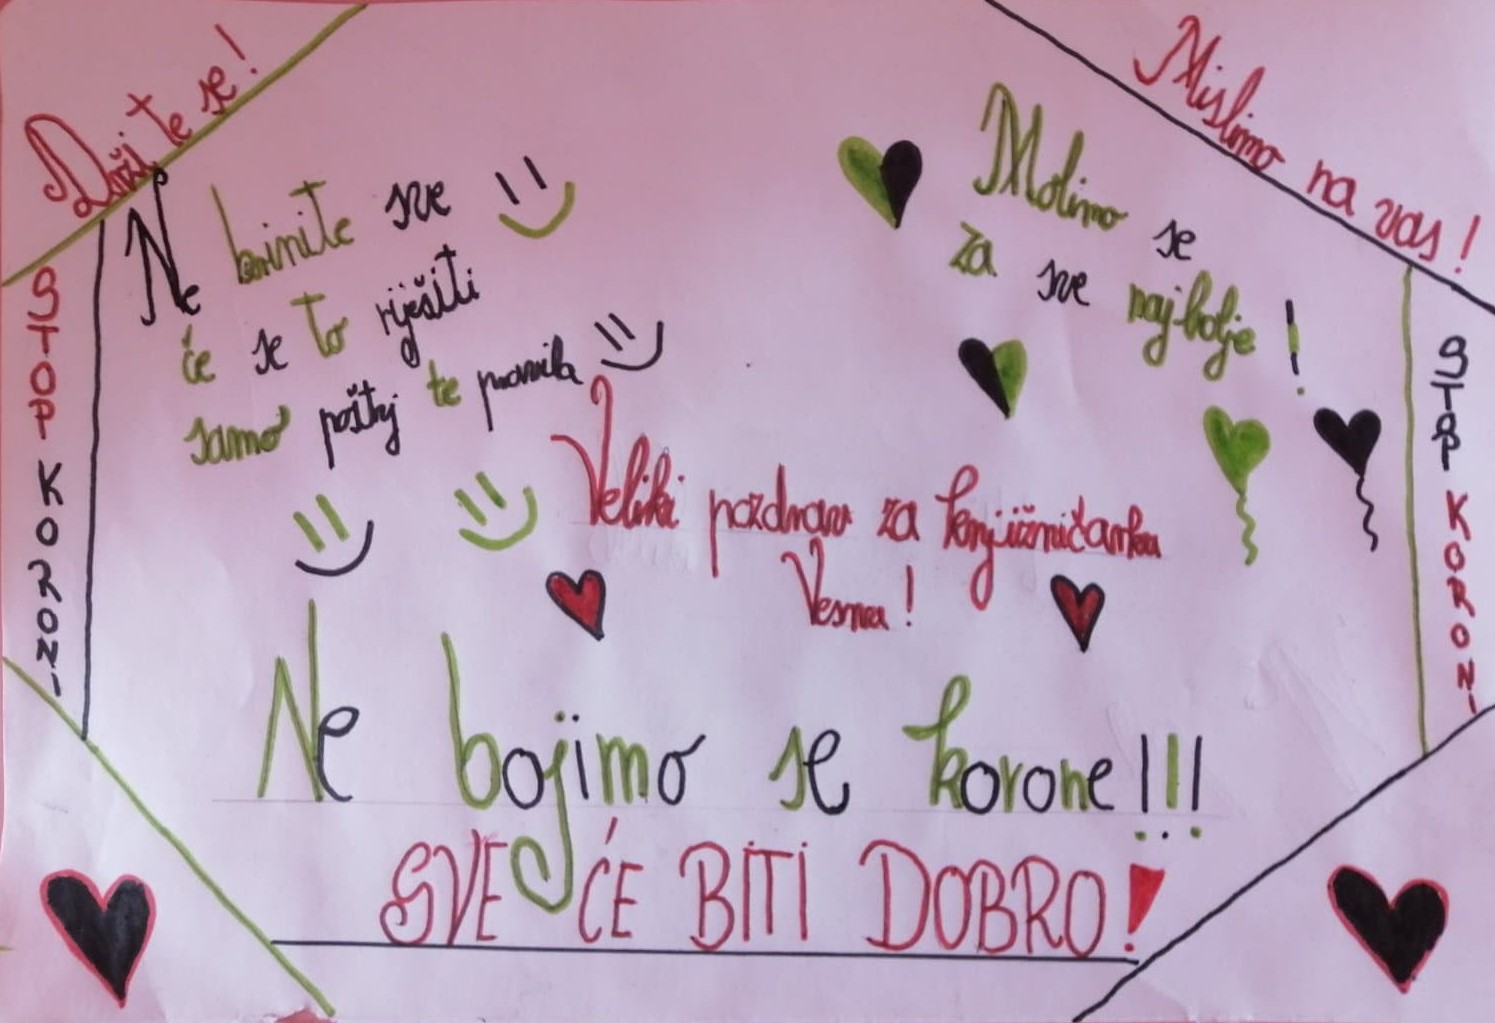 Držite se!
Mislimo na vas!
Ne brinite sve
će se to riješiti
samo poštujte pravila
Molimo se
za sve najbolje!
STOP KORONI
STOP KORONI
Veliki pozdrav za
Vesna!
Ne bojimo se korone!!!
SVE ĆE BITI DOBRO!